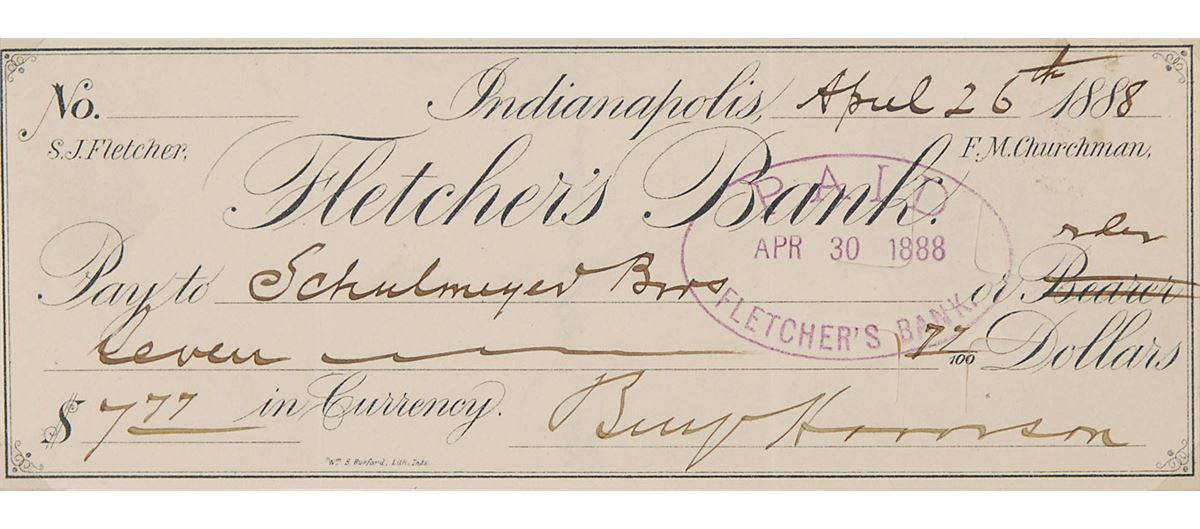 No. Indianapolis, April 26th 1888
S.J.Fletcher. F.M.Churchman,
Fletcher's Bank.
PAID
APR 30 1888
FLETCHER'S BANK.
order
Pay to Schulmeyer Bros or Bearer
Seven 77/100 Dollars
$ 7 77 in Currency.
Benj Harrison
Wm. B. Burford, Lith. Inds.